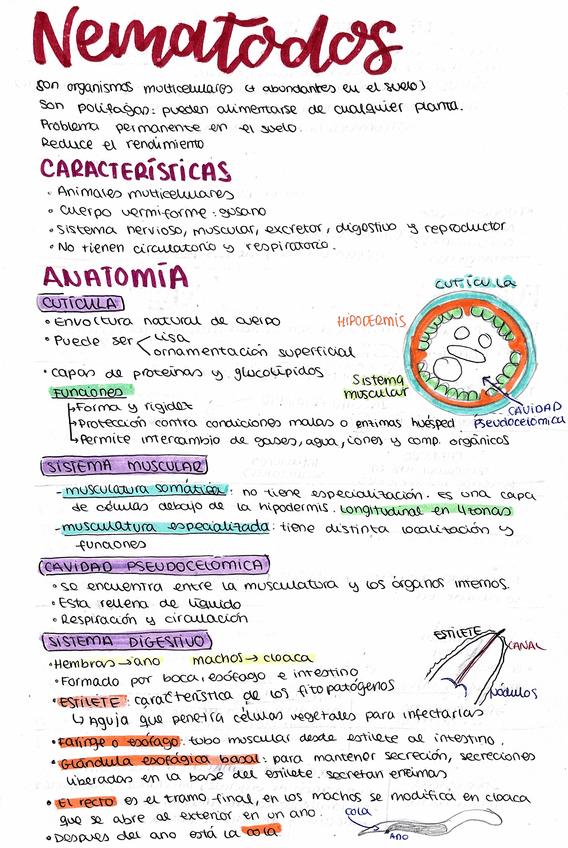 Nematodos
Son organismos multicelulares (+ abundantes en el suelo)
Son polífagos: pueden alimentarse de cualquier planta.
Problema permanente en el suelo.
Reduce el rendimiento
CARACTERÍSTICAS
• Animales multicelulares
• Cuerpo vermiforme: gusano
• Sistema nervioso, muscular, excretor, digestivo y reproductor
• No tienen circulatorio y respiratorio.
ANATOMÍA
CUTÍCULA
CUTÍCULA
• Envoltura natural de cuerpo
HIPODERMIS
• Puede ser lisa
ornamentación superficial
• capas de proteínas y glucolípidos
Sistema
muscular
Funciones
Forma y rigidez
CAVIDAD
Pseudocelomica
Protección contra condiciones malas o enzimas huésped
Permite intercambio de gases, agua, iones y comp. orgánicos
SISTEMA MUSCULAR
- musculatura somática: no tiene especialización. Es una capa
de células debajo de la hipodermis. Longitudinal en 4 zonas
- musculatura especializada: tiene distinta localización y
funciones
CAVIDAD PSEUDOCELOMICA
• Se encuentra entre la musculatura y los órganos internos.
• Esta rellena de líquido
• Respiración y circulación
SISTEMA DIGESTIVO
ESTILETE
CANAL
Nódulos
• Hembras → ano machos → cloaca
• Formado por boca, esófago e intestino
• ESTILETE: característica de los fitopatógenos
↳ Aguja que penetra células vegetales para infectarlas
• Faringe o esófago: tubo muscular desde estilete al intestino.
• Glándula esofágica basal: para mantener secreción, secreciones
liberadas en la base del estilete. secretan enzimas
• El recto es el tramo final, en los machos se modifica en cloaca
que se abre al exterior en un ano.
cola
ANO
• Despues del ano está la cola